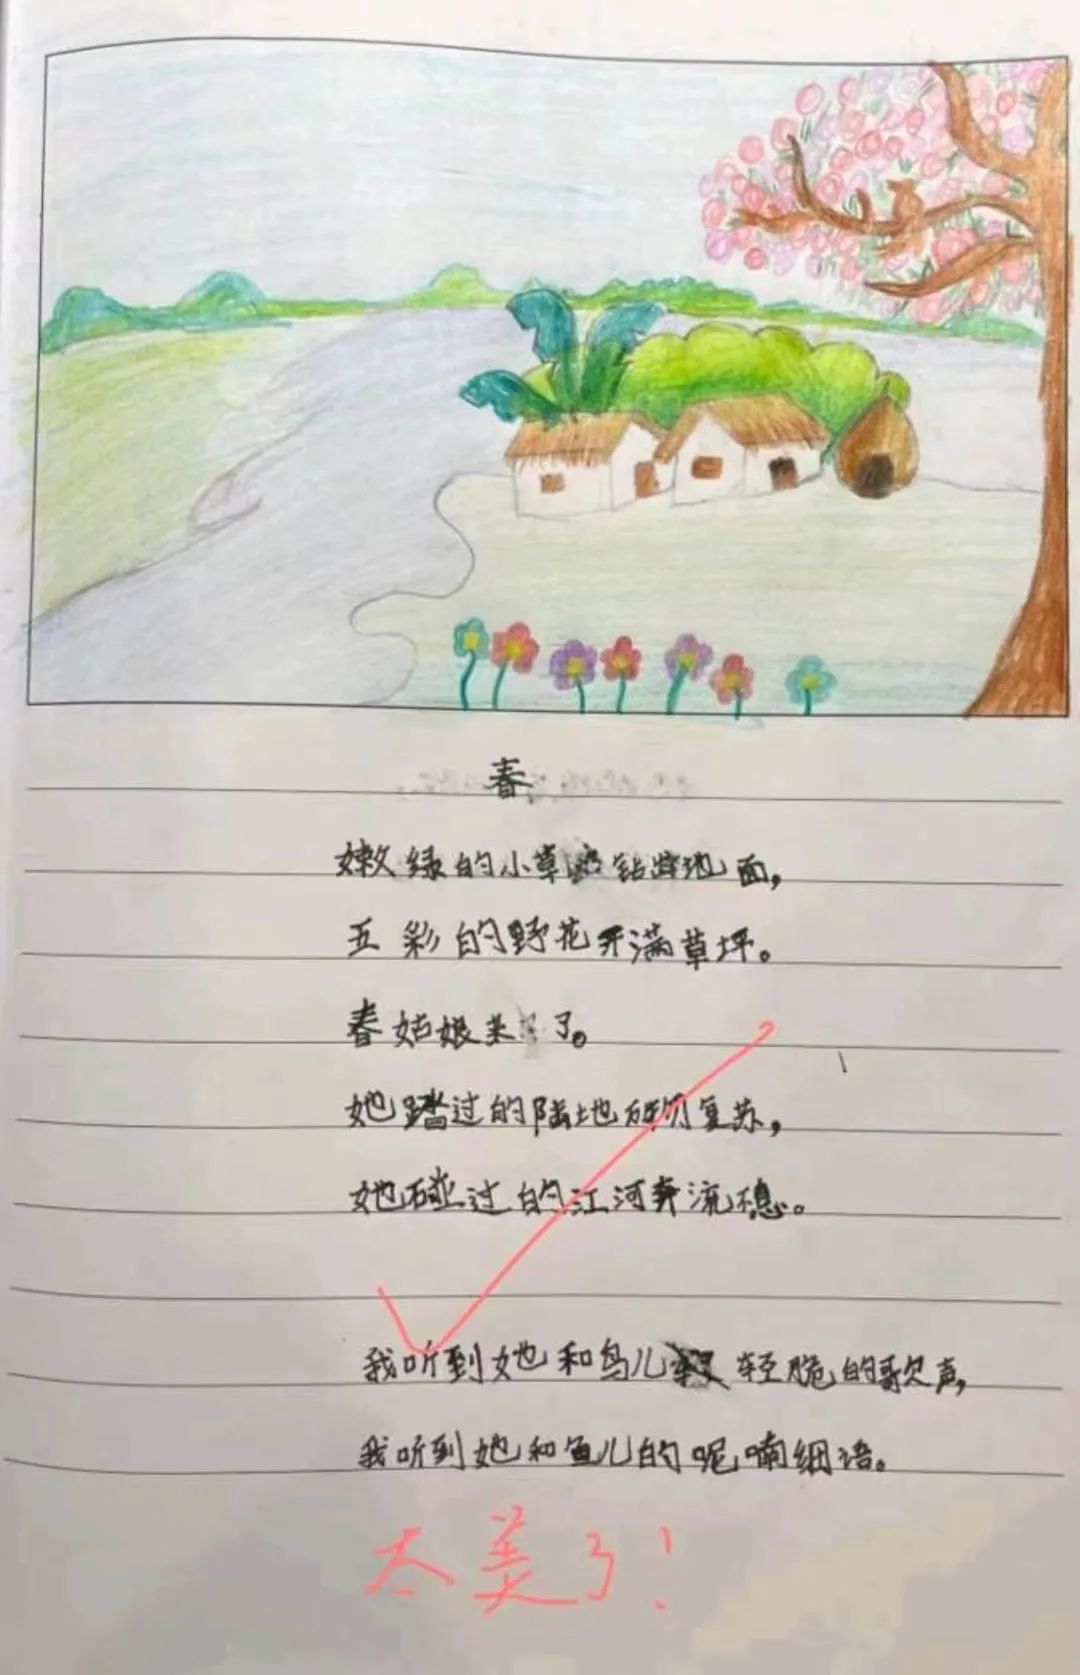 春
嫩绿的小草钻出地面，
五彩的野花开满草坪。
春姑娘来了。
她踏过的陆地万物复苏，
她碰过的江河奔流不息。
我听到她和鸟儿轻脆的歌声，
我听到她和鱼儿的呢喃细语。
太美了！